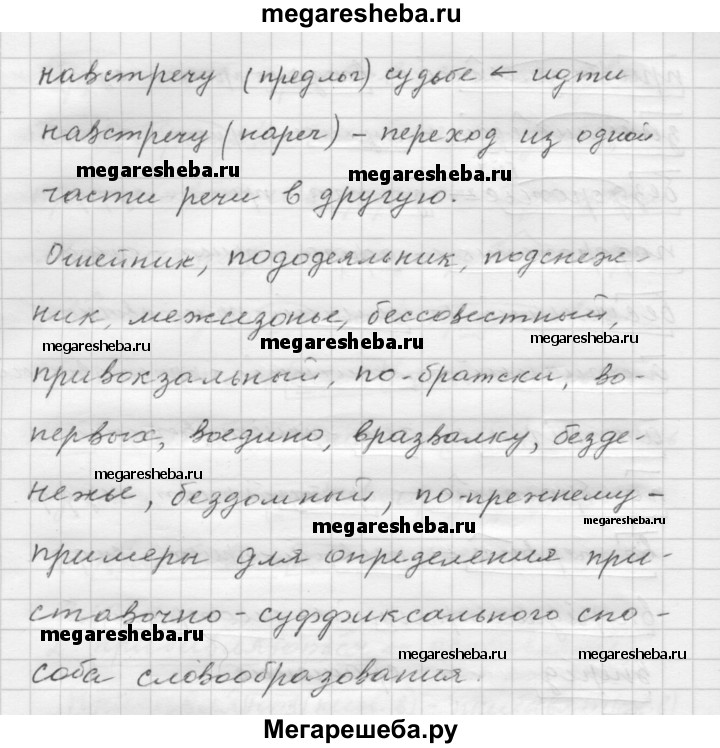 megaresheba.ru
навстречу (предлог) судьбе ← идти
навстречу (нареч) – переход из одной
megaresheba.ru megaresheba.ru
части речи в другую.
Ошейник, пододеяльник, подснеж-
ник, межсезонье, бессовестный,
megaresheba.ru megaresheba.ru megaresheba.ru
привокзальный, по-братски, во-
первых, воедино, вразвалку, безде-
megaresheba.ru
нежье, бездомный, по-прежнему –
megaresheba.ru megaresheba.ru
примеры для определения при-
ставочно-суффиксального спо-
megaresheba.ru megaresheba.ru megaresheba.ru
соба словообразования.
Мегарешеба.ру